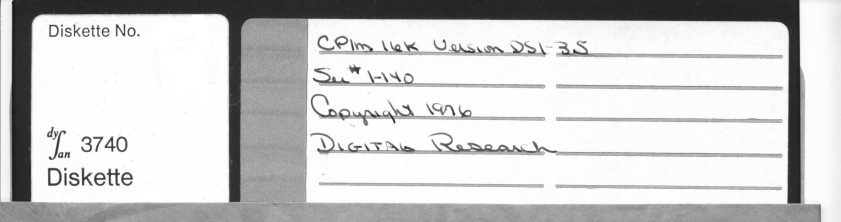 Diskette No.
dy
san 3740
Diskette
CP/m 16K Version DSI-3.5
Ser# 1-140
Copyright 1976
DIGITAL Research